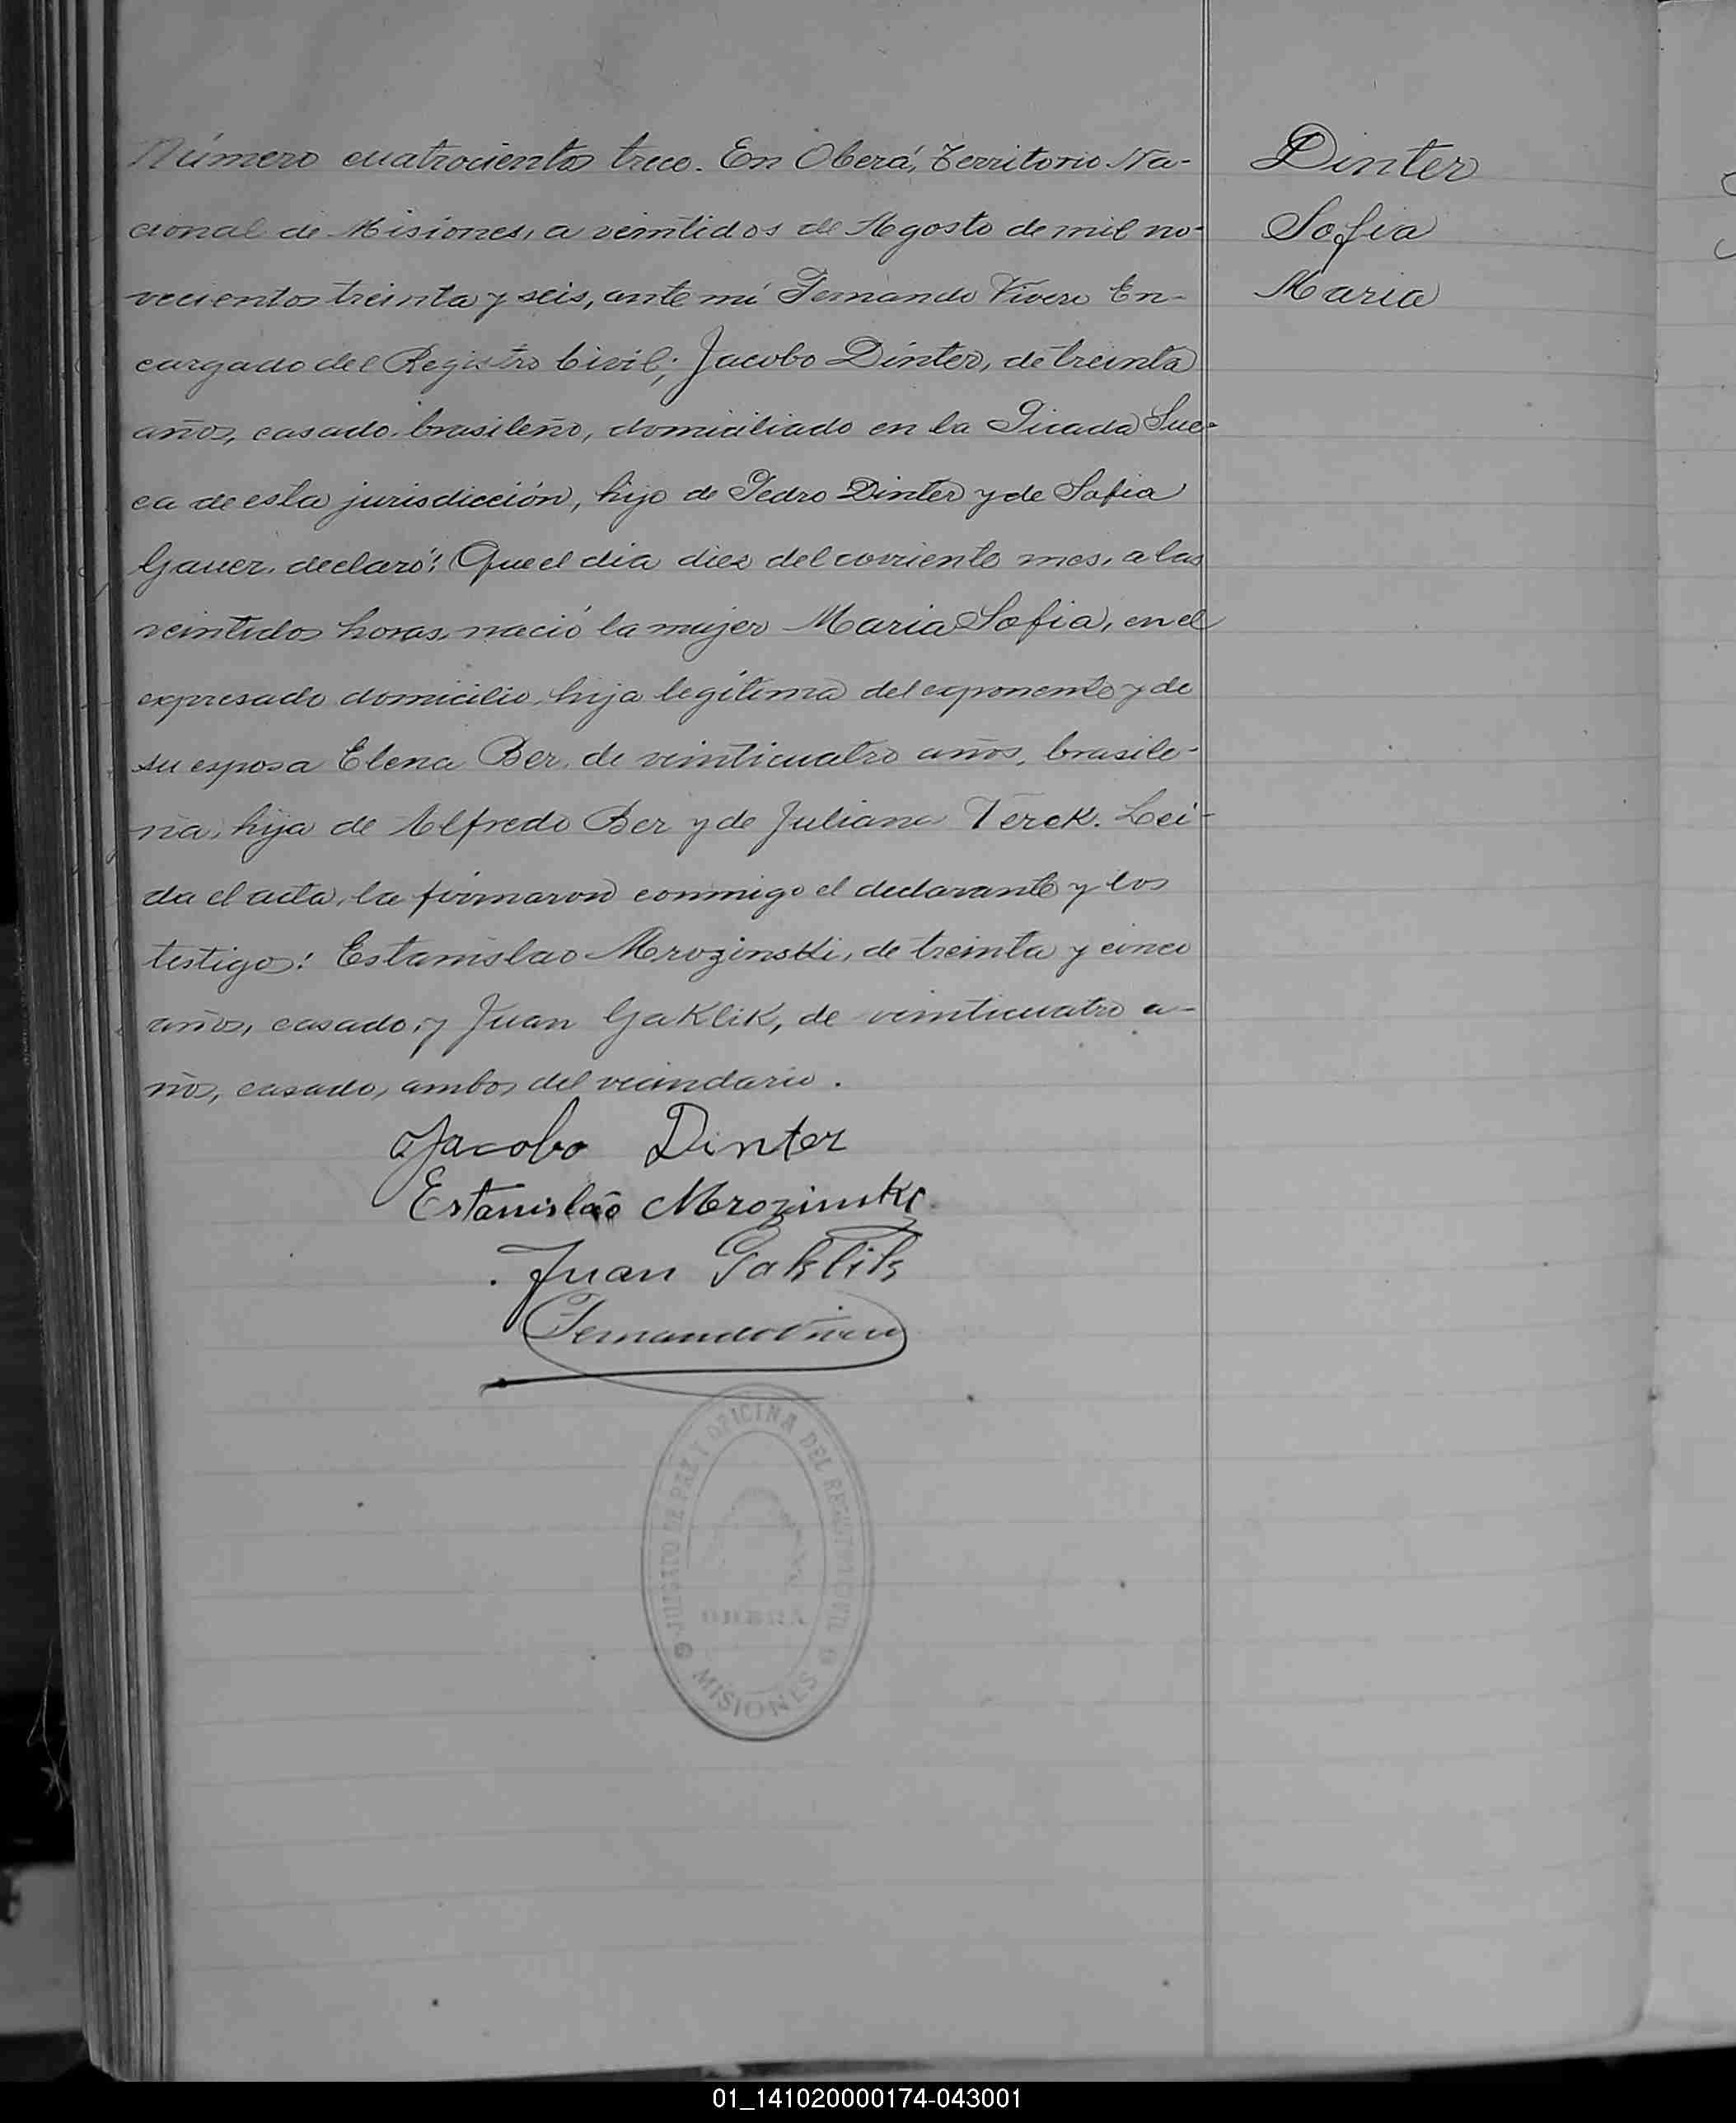 Número cuatrocientos trece. En Oberá, Territorio Na-
cional de Misiones, a veintidos de Agosto de mil no-
vecientos treinta y seis, ante mí Fernando Vivero En-
cargado del Registro Civil; Jacobo Dinter, de treinta
años, casado, brasileño, domiciliado en la Picada Sue-
ca de esta jurisdicción, hijo de Pedro Dinter y de Sofia
Gauer, declaró: Que el dia diez del corriente mes, a las
veintidos horas, nació la mujer Maria Sofia, en el
expresado domicilio, hija legítima del exponente y de
su esposa Elena Ber, de veinticuatro años, brasile-
ña, hija de Alfredo Ber y de Juliana Terck. Leí-
da el acta, la firmaron conmigo el declarante y los
testigos: Estanislao Mrozinski, de treinta y cinco
años, casado, y Juan Gaklik, de veinticuatro a-
ños, casado, ambos del vecindario.
Jacobo Dinter
Estanislao Mrozinski
Juan Gaklik
Fernando Vivero
JUZGADO DE PAZ Y OFICINA DEL REGISTRO CIVIL
OBERÁ
MISIONES
Dinter
Sofia
Maria
01_141020000174-043001